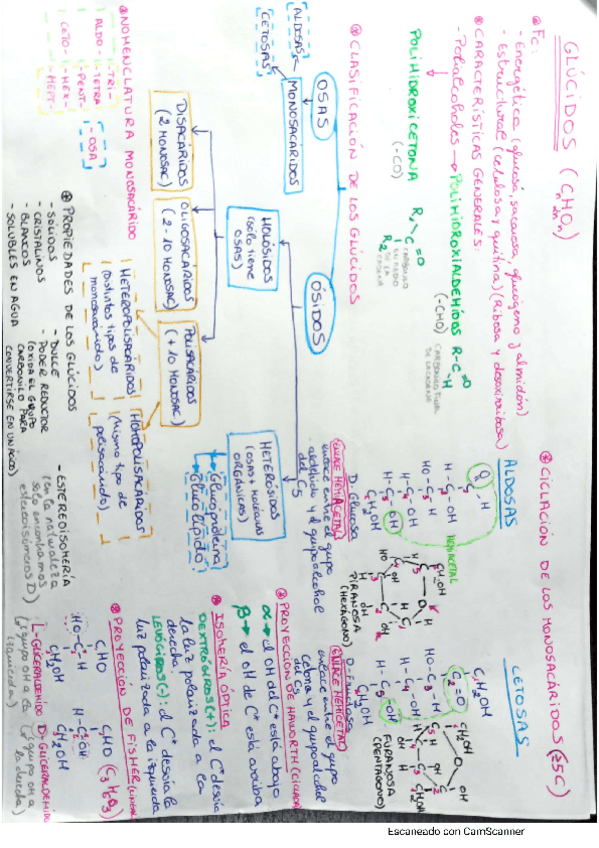 GLÚCIDOS (CnH2nOn)
* Fc:
- Energética (glucosa, sacarosa, glucógeno y almidón)
- Estructural (celulosa y quitina) (Ribosa y desoxirribosa)
* CARACTERÍSTICAS GENERALES:
- Polialcoholes → POLIHIDROXIALDEHÍDOS
(-CHO)
R-C=O
-H
POLIHIDROXICETONA
(-CO)
R1
C=O
R2
CARBONILO
* CLASIFICACIÓN DE LOS GLÚCIDOS
OSAS
ÓSIDOS
MONOSACÁRIDOS
ALDOSAS
CETOSAS
HOLÓSIDOS
(solo tiene
OSAS)
HETERÓSIDOS
(OSAS + MOLÉCULAS
ORGÁNICAS)
Glucoproteína
Glucolípido
DISACÁRIDOS
(2 MONOSAC)
OLIGOSACÁRIDOS
(2-10 MONOSAC)
POLISACÁRIDOS
(+10 MONOSAC)
HETEROPOLISACÁRIDOS
(Distintos tipos de
monosacárido)
HOMOPOLISACÁRIDOS
(Mismo tipo de
polisacárido)
* NOMENCLATURA MONOSACÁRIDO
ALDO-
CETO-
-TRI-
-TETRA
-PENT-
-HEX-
-HEPT-
-OSA
* PROPIEDADES DE LOS GLÚCIDOS
- SÓLIDOS
- CRISTALINOS
- BLANCOS
- SOLUBLES EN AGUA
- DULCE
- PODER REDUCTOR
(OXIDA EL GRUPO
CARBONILO PARA
CONVERTIRSE EN UN ÁCIDO)
- ESTEREOISOMERÍA
(en la naturaleza
solo encontramos
estereoisómeros D)
* CICLACIÓN DE LOS MONOSACÁRIDOS (≥5C)
ALDOSAS
HEMIACETAL
H-C-OH
HO-C-H
H-C-OH
CH2OH
D-Glucosa
PIRANOSA
(HEXÁGONO)
ENLACE HEMIACETAL
enlace entre el grupo
aldehído y el grupo alcohol
del C5
CETOSAS
CH2OH
C=O
HO-C-H
H-C-OH
CH2OH
D-Fructosa
FURANOSA
(PENTÁGONO)
ENLACE HEMICETAL
enlace entre el grupo
cetona y el grupo alcohol
del C5
* PROYECCIÓN DE HAWORTH (CICLADA)
α → el OH del C* está abajo
β → el OH de C* está arriba
* ISOMERÍA ÓPTICA
DEXTRÓGIROS (+): el C* desvía
la luz polarizada a la
derecha
LEVÓGIROS (-): el C* desvía la
luz polarizada a la izquierda
* PROYECCIÓN DE FISHER (LINEAL)
CHO
HO-C-H
CH2OH
L-GLICERALDEHÍDO
(grupo OH a la
izquierda)
CHO (C3H6O3)
H-C-OH
CH2OH
D-GLICERALDEHÍDO
(grupo OH a
la derecha)
Escaneado con CamScanner